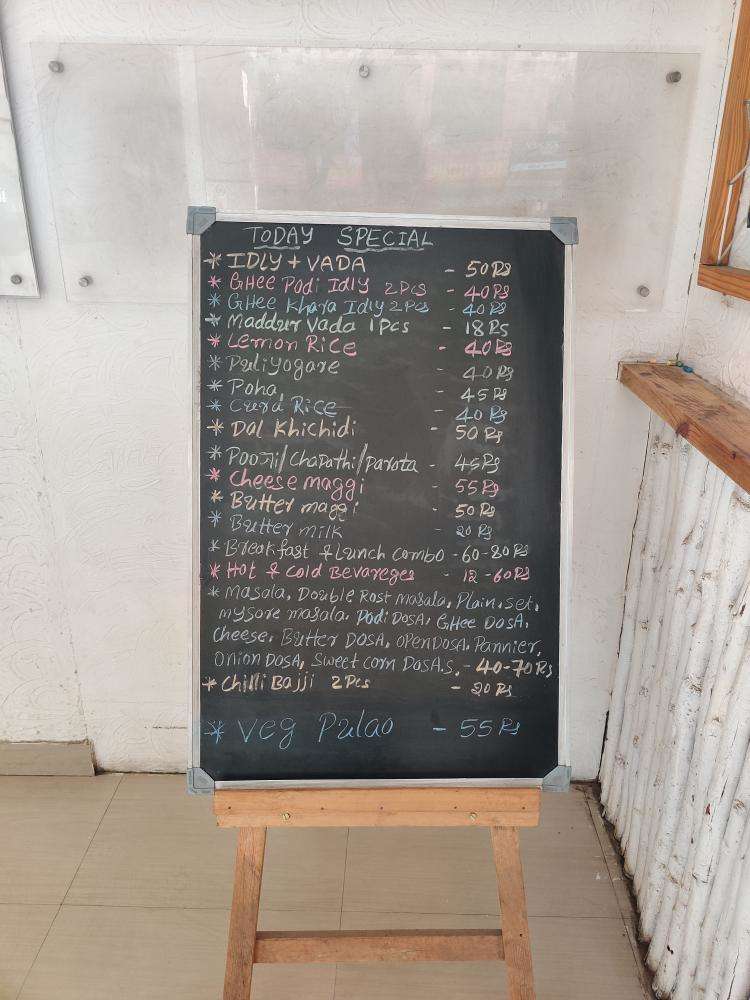 TODAY SPECIAL
* IDLY + VADA - 50 Rs
* GHee Podi Idly 2 Pcs - 40 Rs
* GHee Khara Idly 2 Pcs - 40 Rs
* Maddur Vada 1 Pcs - 18 Rs
* Lemon Rice - 40 Rs
* Puliyogare - 40 Rs
* Poha - 45 Rs
* Curd Rice - 40 Rs
* Dal Khichidi - 50 Rs
* Poori/Chapathi/parota - 45 Rs
* Cheese maggi - 55 Rs
* Butter maggi - 50 Rs
* Butter milk - 20 Rs
* Breakfast & Lunch combo - 60-80 Rs
* Hot & Cold Bevareges - 12 - 60 Rs
* Masala, Double Rost Masala, Plain, Set,
mysore masala, Podi Dosa, GHee Dosa,
Cheese, Butter Dosa, Open Dosa, Pannier,
Onion Dosa, Sweet corn Dosa.s. - 40-70 Rs
* Chilli Bajji 2 Pcs - 20 Rs
* Veg Pulao - 55 Rs